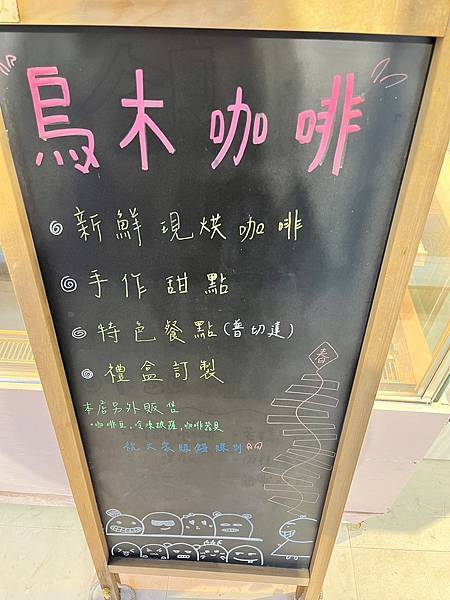 烏木咖啡
新鮮現烘咖啡
手作甜點
特色餐點(普切達)
禮盒訂製
春
本店另外販售
·咖啡豆,冷凍披薩,咖啡器具
祝大家賺錢賺到